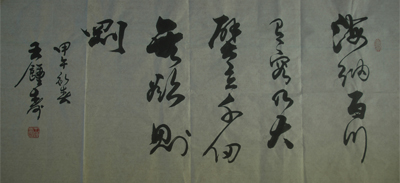 海納百川
有容乃大
壁立千仞
無欲則
剛
甲午春
王